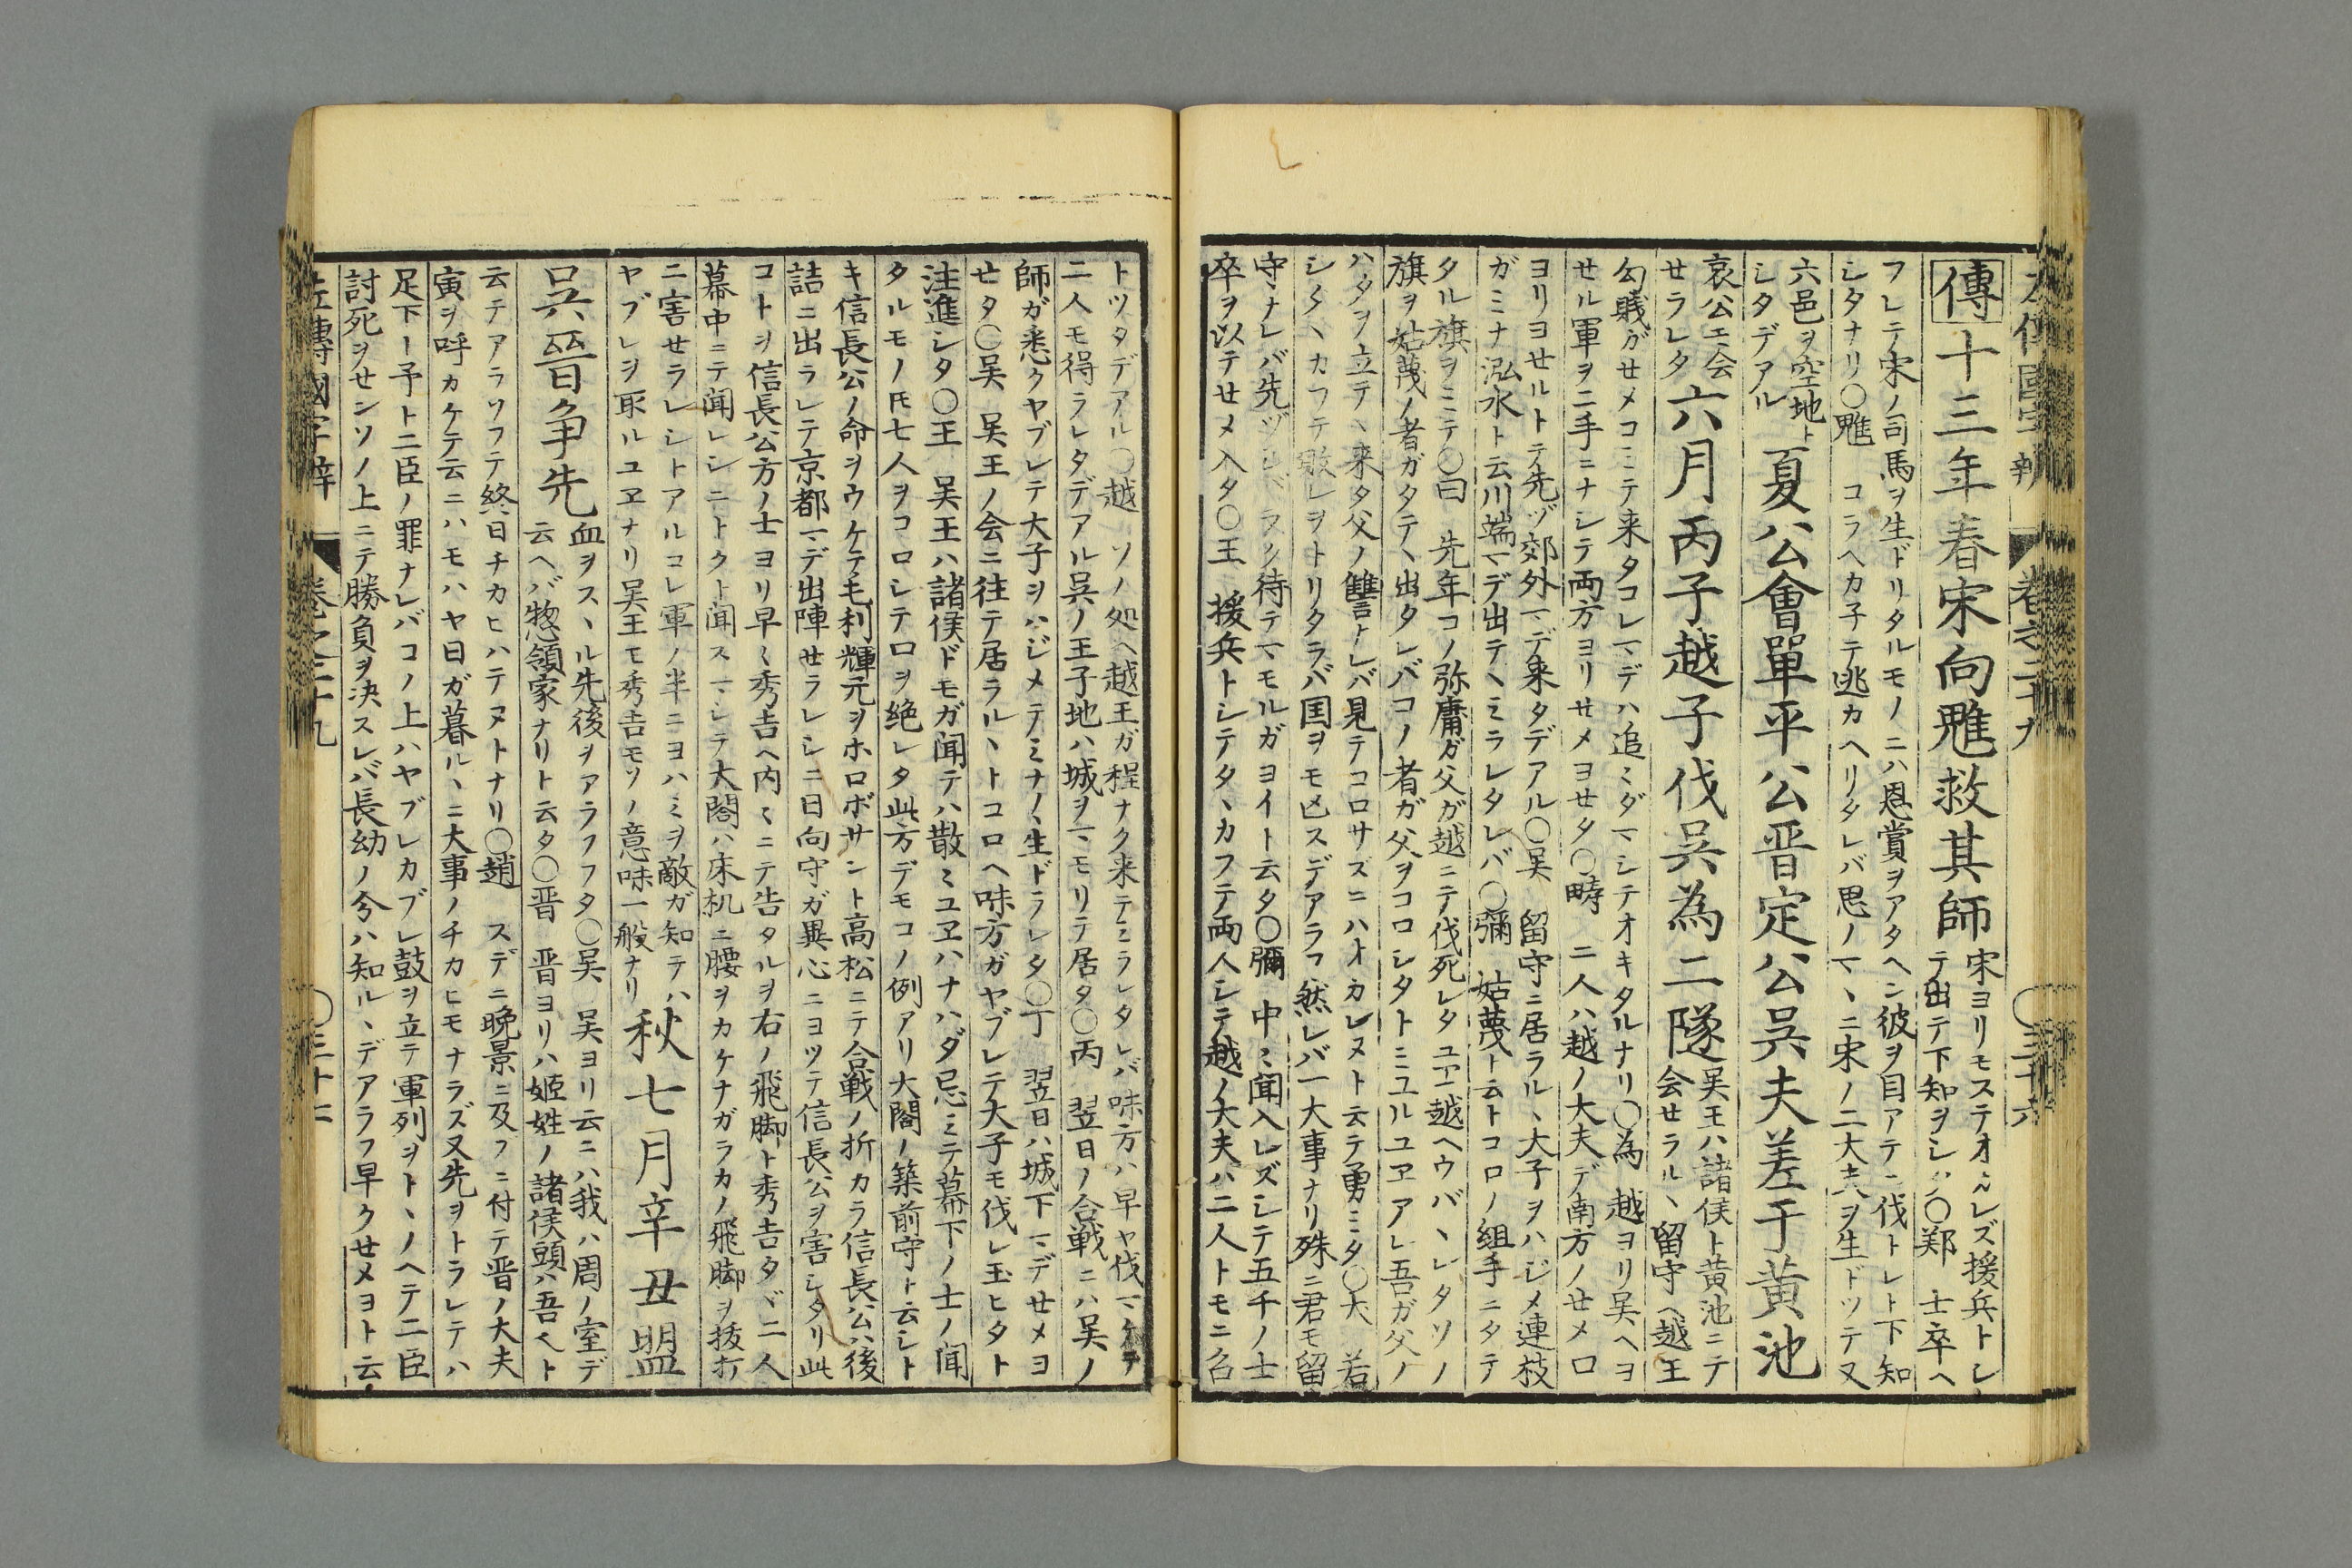 左傳國字辨 卷之二十九 〇三十六
傳十三年春宋向魋救其師
宋ヨリモステオカレズ援兵トシ
テ出テ下知ヲシタ〇鄭 士卒ヘ
フレテ宋ノ司馬ヲ生ドリタルモノニハ恩賞ヲアタヘン彼ヲ目アテニ伐トレト下知
シタナリ〇魋 コラヘカ子テ逃カヘリタレバ思ノマヽニ宋ノ二大夫ヲ生ドツテ又
六邑ヲ空地ト
シタデアル
夏公會單平公晋定公呉夫差于黄池
哀公エ会
セラレタ
六月丙子越子伐呉為二隧
呉王ハ諸侯ト黄池ニテ
会セラルヽ留守ヘ越王
勾賎ガせメコミテ来タコレマデハ追ミダマシテオキタルナリ〇為 越ヨリ呉ヘヨ
せル軍ヲ二手ニナシテ両方ヨリせメヨせタ〇疇 二人ハ越ノ大夫デ南方ノせメ口
ヨリヨせルトテ先ヅ郊外マデ来タデアル〇呉 留守ニ居ラルヽ大子ヲハジメ連枝
ガミナ泓水ト云川端マデ出テヽミラレタレバ〇彌 姑蔑ト云トコロノ組手ニタテ
タル旗ヲミテ〇曰 先年コノ弥庸ガ父ガ越ニテ伐死レタユヱ越ヘウバヽレタソノ
旗ヲ姑蔑ノ者ガタテヽ出タレバコノ者ガ父ヲコロシタトミユルユヱアレ吾ガ父ノ
ハタヲ立テヽ来タ父ノ讐トレバ見テコロサズニハオカレヌト云テ勇ミタ〇大 若
シタヽカフテ敵レヲトリタラバ国ヲモ亡スデアラフ然レバ一大事ナリ殊ニ君モ留
守ナレバ先ヅ待テマモルガヨイト云タ〇彌 中ミ聞入レズシテ五千ノ士
卒ヲ以テせメ入タ〇王 援兵トシテタヽカフテ両人シテ越ノ大夫ハ二人トモニ召
トツタデアル〇越 ソノ処ヘ越王ガ程ナク来テミラレタレバ味方ハ早ヤ伐マケテ
二人モ得ラレタデアル呉ノ王子地ハ城ヲマモリテ居タ〇丙 翌日ノ合戦ニハ呉ノ
師ガ悉クヤブレテ大子ヲハジメテミナ〳〵生ドラレタ〇丁 翌日ハ城下マデせメヨ
せタ〇呉 呉王ノ会ニ往テ居ラルヽトコロヘ味方ガヤブレテ大子モ伐レ玉ヒタト
注進シタ〇王 呉王ハ諸侯ドモガ聞テハ散ミユヱハナハダ忌ミテ幕下ノ士ノ聞
タルモノ𪜈七人ヲコロシテ口ヲ絶レタ此方デモコノ例アリ大閤ノ築前守ト云シト
キ信長公ノ命ヲウケテ毛利輝元ヲホロボサント高松ニテ合戦ノ折カラ信長公ハ後
詰ニ出ラレテ京都マデ出陣せラレシニ日向守ガ異心ニヨツテ信長公ヲ害シタリ此
コトヲ信長公方ノ士ヨリ早ミ秀吉ヘ内ミニテ告タルヲ右ノ飛脚ト秀吉タヾ二人
幕中ニテ聞レシニトクト聞スマシテ大閤ハ床机ニ腰ヲカケナガラカノ飛脚ヲ抜打
ニ害せラレシトアルコレ軍ノ半ニヨハミヲ敵ガ知テハ
ヤブレヲ取ルユヱナリ呉王モ秀吉モソノ意味一般ナリ
秋七月辛丑盟
呉晉争先
血ヲスヽル先後ヲアラフフタ〇呉 呉ヨリ云ニハ我ハ周ノ室デ
云ヘバ惣領家ナリト云タ〇晋 晋ヨリハ姬姓ノ諸侯頭ハ吾ヘト
云テアラソフテ終日チカヒハテヌトナリ〇趙 スデニ晩景ニ及フニ付テ晋ノ大夫
寅ヲ呼カケテ云ニハモハヤ日ガ暮ルヽニ大事ノチカヒモナラズ又先ヲトラレテハ
足下ー予ト二臣ノ罪ナレバコノ上ハヤブレカブレ鼓ヲ立テ軍列ヲトヽノヘテ二臣
討死ヲせンソノ上ニテ勝負ヲ決スレバ長幼ノ兮ハ知ルヽデアラフ早クせメヨト云
左傳國字辨 卷之二十九 〇三十六